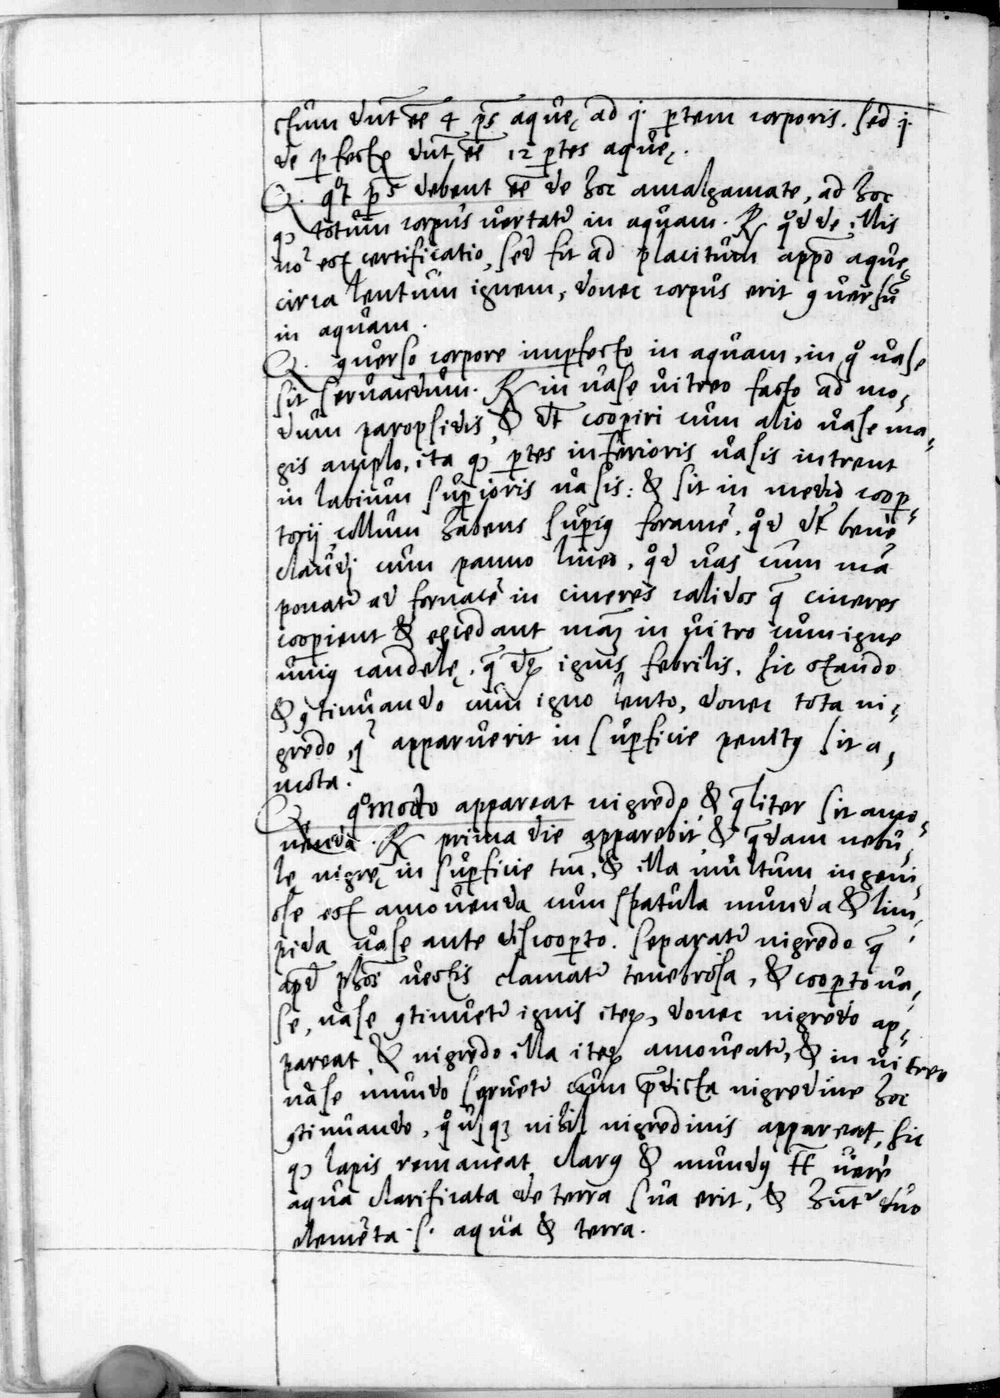 ctum dnt ee 4 ps aquę ad j. ptem corporis. Sed j.
de pfectis dnt ee 12 ptes aquę.
Q. qt ps debent ee de hoc amalgamate, ad hoc
q totum corpus vertat in aquam. R. qd de illis
no est certificatio, sed fit ad placitum appo aquę
circa lentum ignem, donec corpus erit 9versu
in aquam.
Q. 9verso corpore impfecto in aquam, in q vase
sit servandum. R. in vase vitreo facto ad mo,
dum paropsidis, & dt coopiri cum alio vase ma,
gis amplo, ita q ptes inferioris vasis intrent
in labium supioris vasis: & sit in medio coop,
torij collum habens supi9 foramē, qd dt bene
claudj cum panno lineo, qd vas cum mā
ponat ad fornacē in cineres calidos q cineres
coopient & excedant mā in vitro cum igne
uni9 candelę, q dr ignis febrilis, sic stando
& 9tinuando cum igne lento, donec tota ni,
gredo, q apparuerit in supficie penit9 sit a,
mota.
Q. qomodo appareat nigredo, & qliter sit amo,
venda. R. prima die apparebit, & qdam nebu,
lę nigrę in supficie tm, & illa multum ingeni,
ose est amovenda cum spatula munda & lim,
pida vase ante discoopto. Separat nigredo q
apd phos vestis clamat tenebrosa, & coopto va,
se, vase 9tinuet ignis iter, donec nigredo ap,
pareat, & nigredo illa iter amoveat, & in vitreo
vase mundo servet cum pdicta nigredine hoc
9tinuando, qusq nihil nigredinis appareat, sic
q lapis remaneat clar9 & mund9 tt vere
aqua clarificata de terra sua erit, & hnt duo
elemēta .s. aqua & terra.